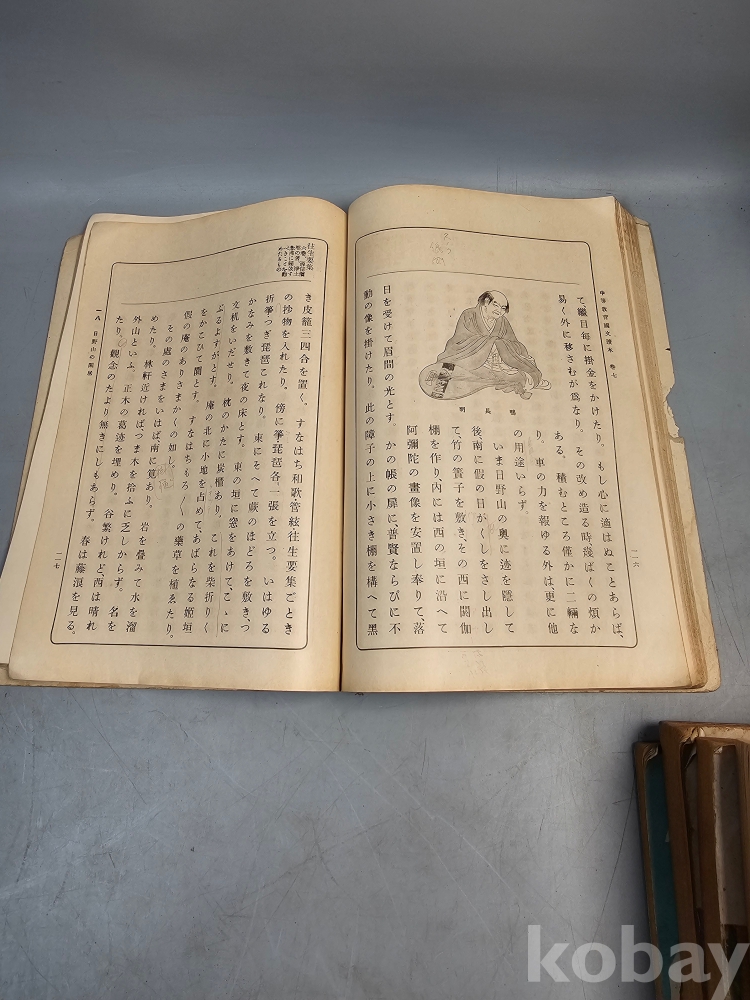 中等教育國文讀本 卷七
一一六
て繼目每に掛金をかけたり。もし心に適はぬことあらば、
易く外に移さむが爲なり。その改め造る時幾ばくの煩か
ある。積むところ僅かに二輛な
り。車の力を報ゆる外は更に他
の用途いらず。
いま日野山の奧に迹を隱して
後、南に假の日がくしをさし出し
て竹の簀子を敷き、その西に閼伽
棚を作り、內には西の垣に沿へて
阿彌陀の畫像を安置し奉りて、落
日を受けて眉間の光とす。かの帳の扉に、普賢ならびに不
動の像を掛けたり。此の障子の上に小さき棚を構へて黑
鴨長明
往生要集
き皮籠三四合を置く。すなはち和歌・管絃・往生要集ごとき
の抄物を入れたり。傍に箏・琵琶各、一張を立つ。いはゆる
折箏・つぎ琵琶これなり。東にそへて蕨のほどろを敷き、つ
かなみを敷きて夜の床とす。東の垣に窓をあけて、こゝに
文机をいだせり。枕のかたに炭櫃あり。これを柴折りく
ぶるよすがとす。庵の北に小地を占めて、あばらなる姬垣
をかこひて園とす。すなはちもろ〱の藥草を植ゑたり。
假の庵のありさまかくの如し。
その處のさまをいはば、南に筧あり。岩を疊みて水を溜
めたり。林軒近ければつま木を拾ふに乏しからず。名を
外山といふ。正木の葛迹を埋めり。谷繁けれど、西は晴れ
たり。觀念のたより無きにしもあらず。春は藤浪を見る。
一八 日野山の閑居
一一七
kobay